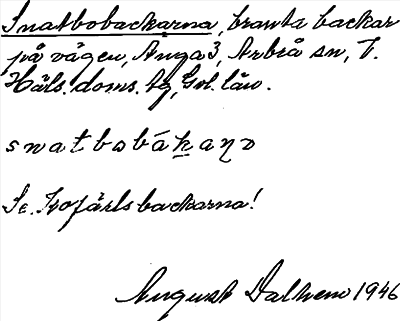 Snatbobackarna, branta backar
på vägen, Ånga 3, Arbrå sn, V.
Häls. doms. tg, Gvl. län.
snatbobákaɳɔ
Se. Kofärlsbackarna!
August Dalhem 1946